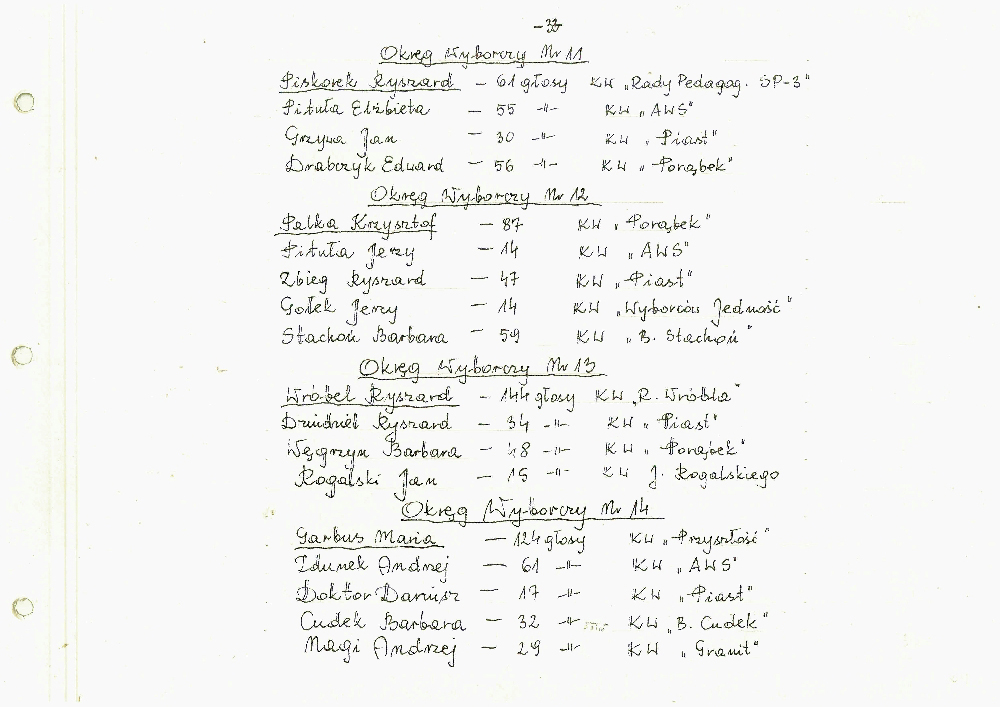 Okręg Wyborczy Nr 11
Piskorek Ryszard – 61 głosy KW „Rady Pedagog. SP-3"
Pituła Elżbieta – 55 –"– KW „AWS"
Grzywa Jan – 30 –"– KW „Piast"
Drabczyk Edward – 56 –"– KW „Porąbek"
Okręg Wyborczy Nr 12
Pałka Krzysztof – 87 KW „Porąbek"
Pituła Jerzy – 14 KW „AWS"
Zbieg Ryszard – 47 KW „Piast"
Gołek Jerzy – 14 KW „Wyborców Jedność"
Stachoń Barbara – 59 KW „B. Stachoń"
Okręg Wyborczy Nr 13
Wróbel Ryszard – 144 głosy KW „R. Wróbla"
Ryszard – 34 –"– KW „Piast"
Węgrzyn Barbara – 48 –"– KW „Porąbek"
Rogalski Jan – 15 –"– KW J. Rogalskiego
Okręg Wyborczy Nr 14
Garbus Maria – 124 głosy KW „Przyszłość"
Idunek Andrzej – 61 –"– KW „AWS"
Doktor Dariusz – 17 –"– KW „Piast"
Cudek Barbara – 32 –"– KW „B. Cudek"
Magi Andrzej – 29 –"– KW „Granit"